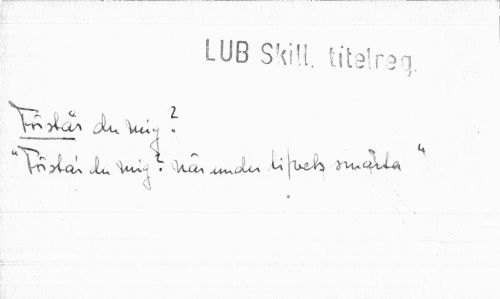 LUB Skill. titelreg.
Förstår du mig?
"Förstår du mig? när under lifvets smärta"